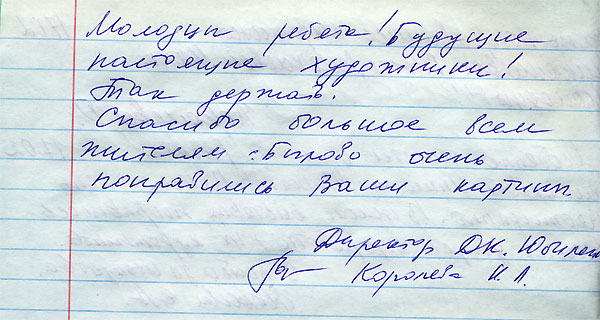 Молодцы ребята! Будущие
настоящие художники!
Так держать.
Спасибо большое всем
жителям
очень
понравились Ваши картины.
Директор ДК.
Королева Н. Л.